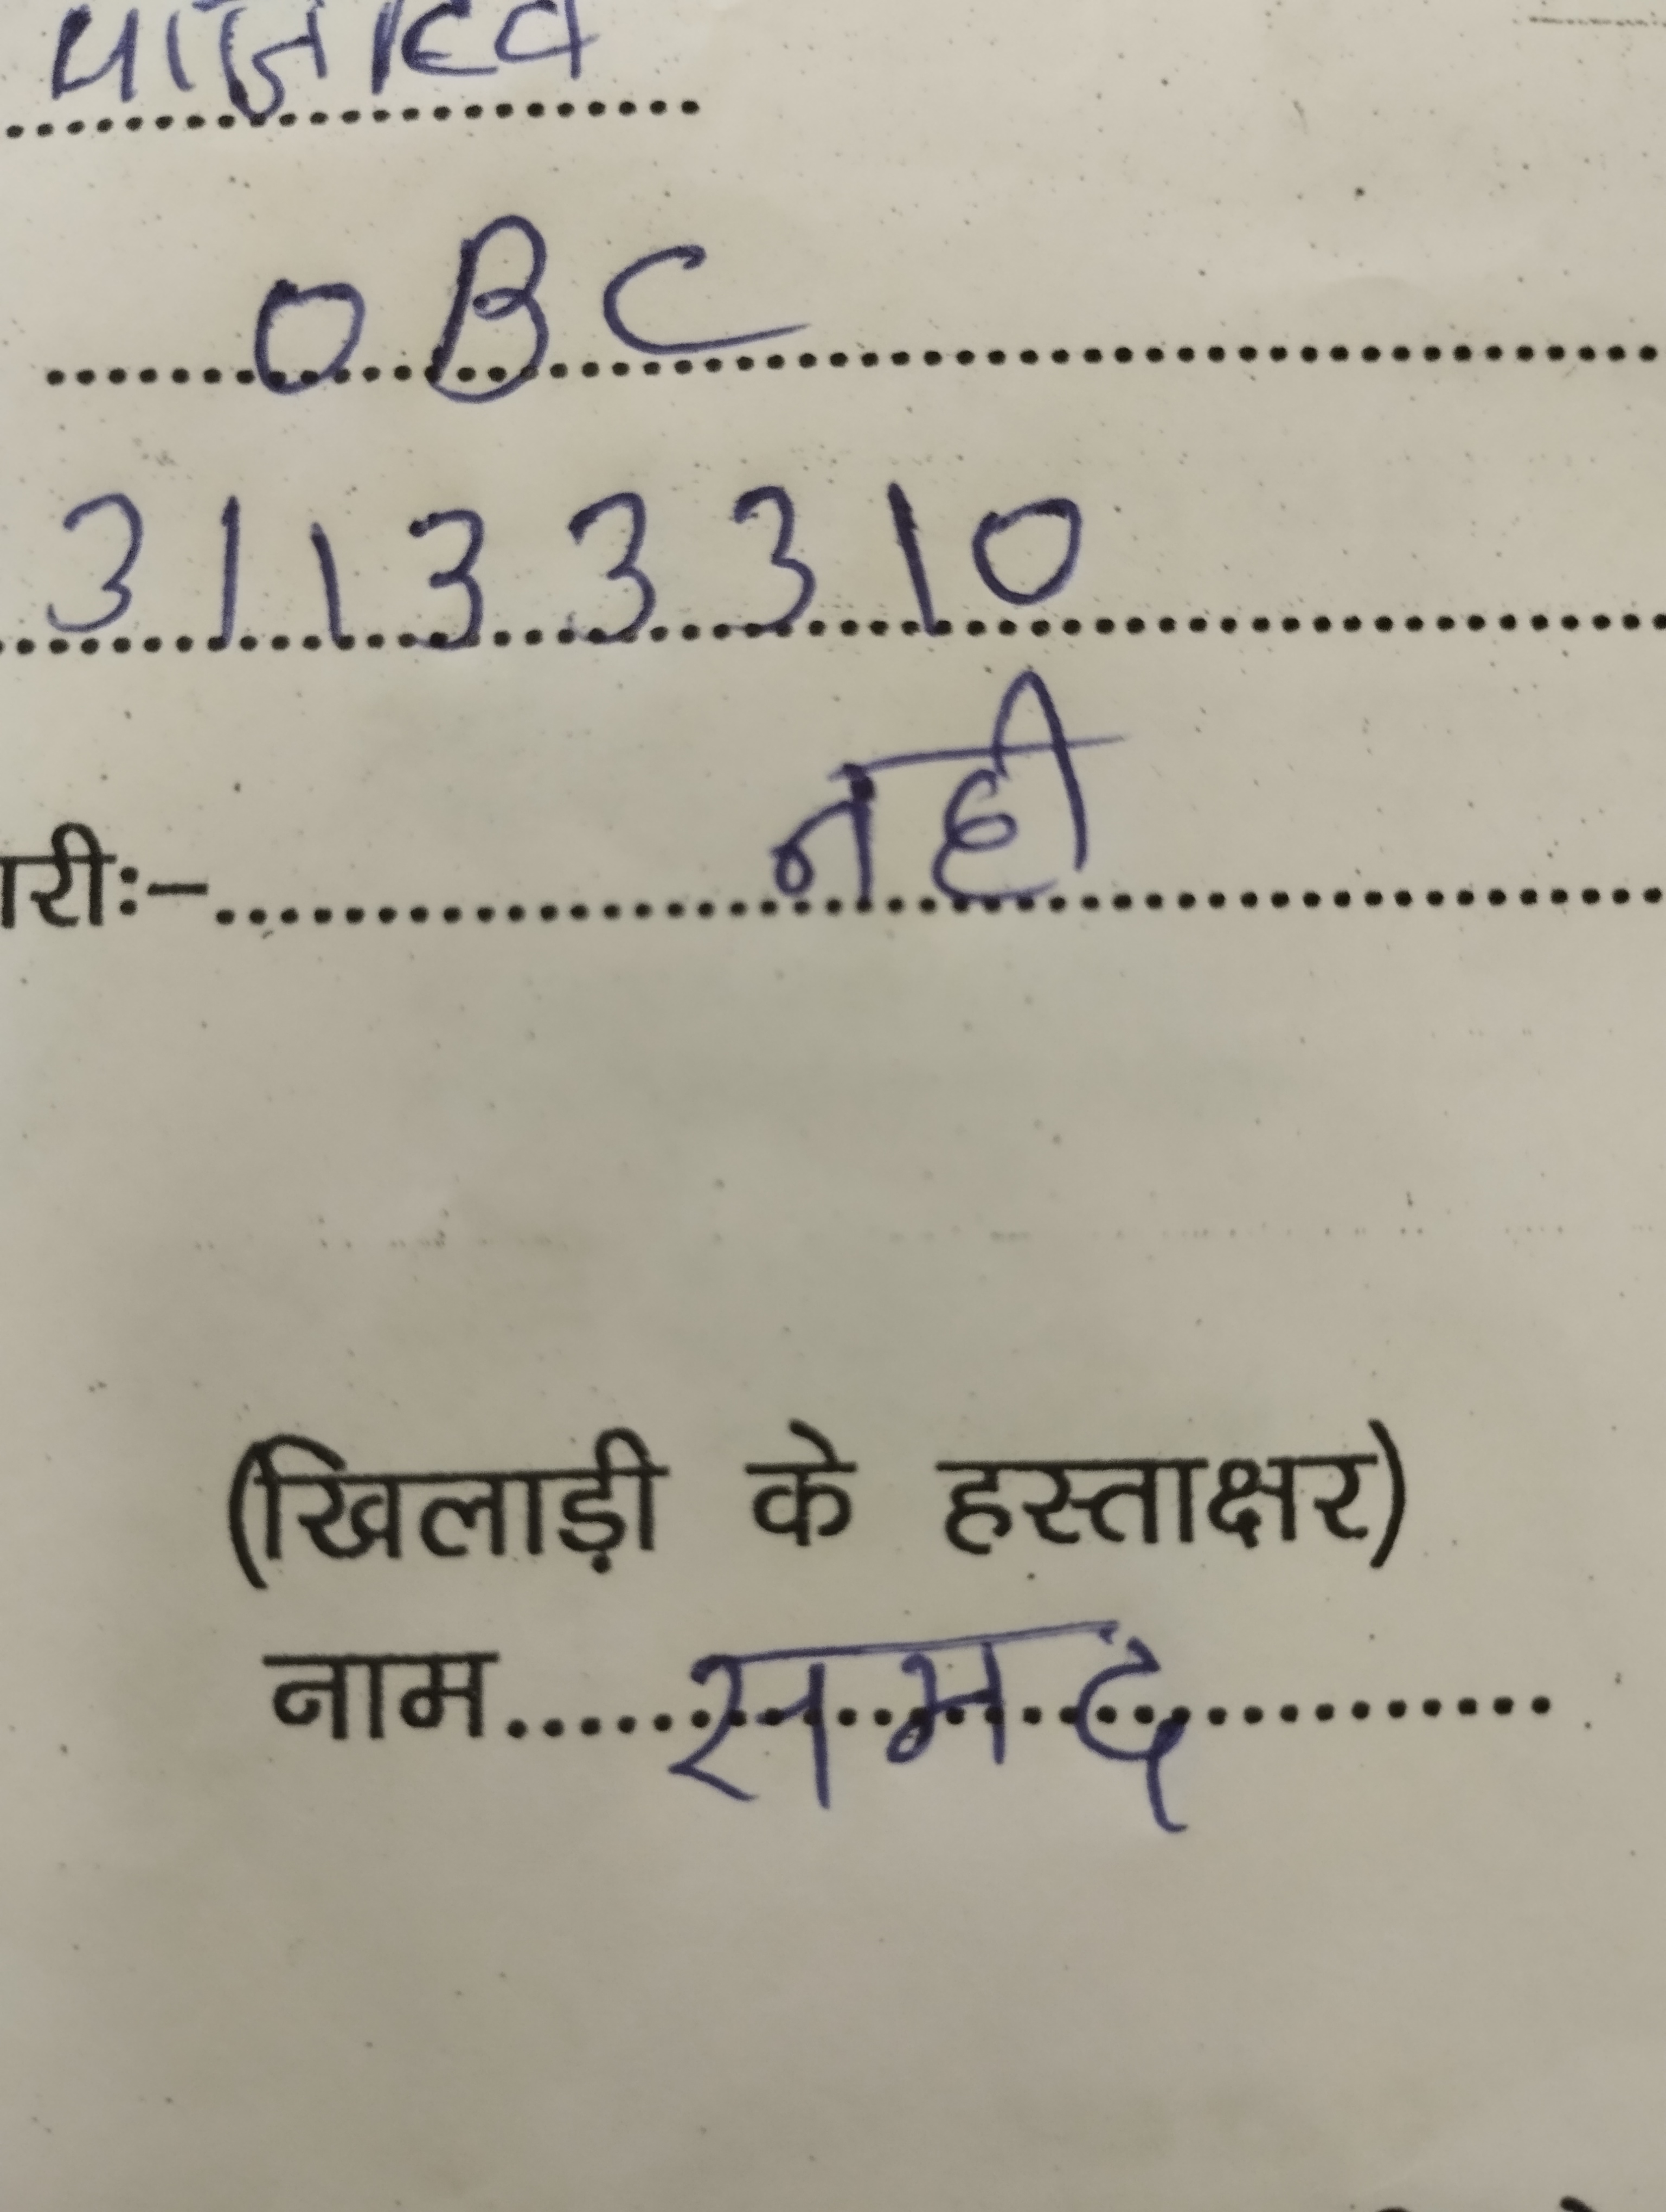 OBC
31133310
ारीः– नही
(खिलाड़ी के हस्ताक्षर)
नाम समद